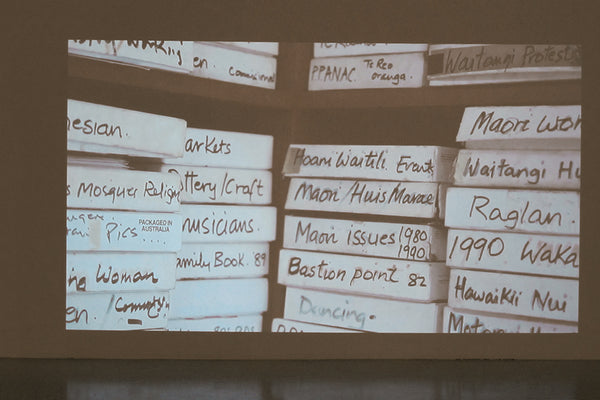 en.
Commissional
Te Reo
PPANAC. Te Reo
oranga.
Waitangi Protests
nesian.
s Mosques Religin
Pics
PACKAGED IN
AUSTRALIA
Woman
en. / Community
arkets
ottery/Craft
musicians.
amily Book. '89
Hoani Waititi. Event
Maori / Huis Marae
Maori issues 1980
1990
Bastion point 82
Dancing.
Maori Wo
Waitangi Hu
Raglan.
1990 Waka
Hawaikii Nui